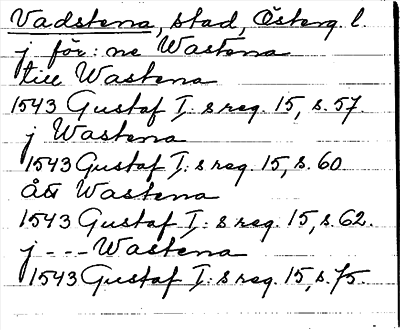 Vadstena, stad, Österg. l.
j för: ne Wastena
till Wastena
1543 Gustaf I:s reg. 15, s. 57.
j Wastena
1543 Gustaf I:s reg. 15, s. 60
Att Wastena
1543 Gustaf I:s reg. 15, s. 62.
j --- Wastena
1543 Gustaf I:s reg. 15, s. 75.